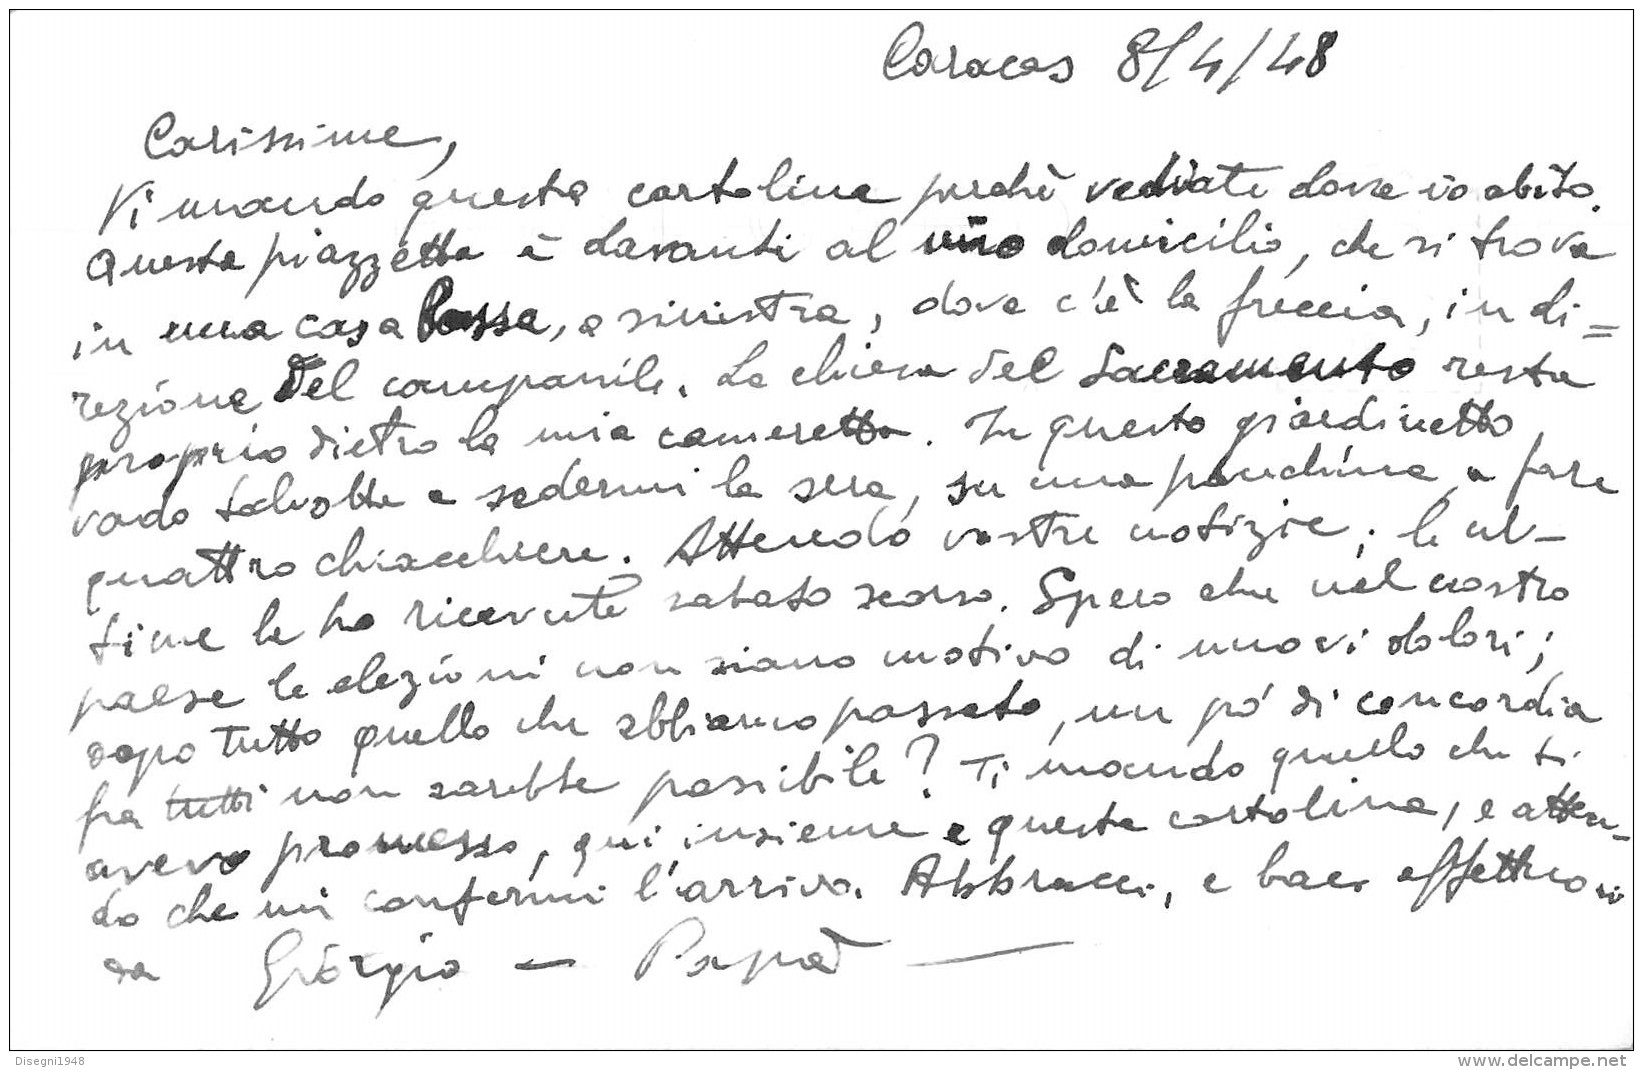 Caracas 8/4/48
Carissime,
Vi mando questa cartolina perchè vediate dove io abito.
Questa piazzetta è davanti al mio domicilio, che si trova
in una casa bassa, a sinistra, dove c'è la freccia, in di=
rezione del campanile. La chiesa del Sacramento resta
proprio dietro la mia cameretta. In questo giardinetto
vado talvolta a sedermi la sera, su una panchina, a fare
quattro chiacchiere. Attendo vostre notizie; le ul-
time le ho ricevute sabato scorso. Spero che nel nostro
paese le elezioni non siano motivo di nuovi dolori;
dopo tutto quello che abbiamo passato, un pó di concordia
fra tutti non sarebbe possibile? Ti mando quello che ti
avevo promesso, qui, insieme a questa cartolina, e atten-
do che mi confermi l'arrivo. Abbracci, e baci affettuosi
da Giorgio - Papà
Disegni1948
www.delcampe.net